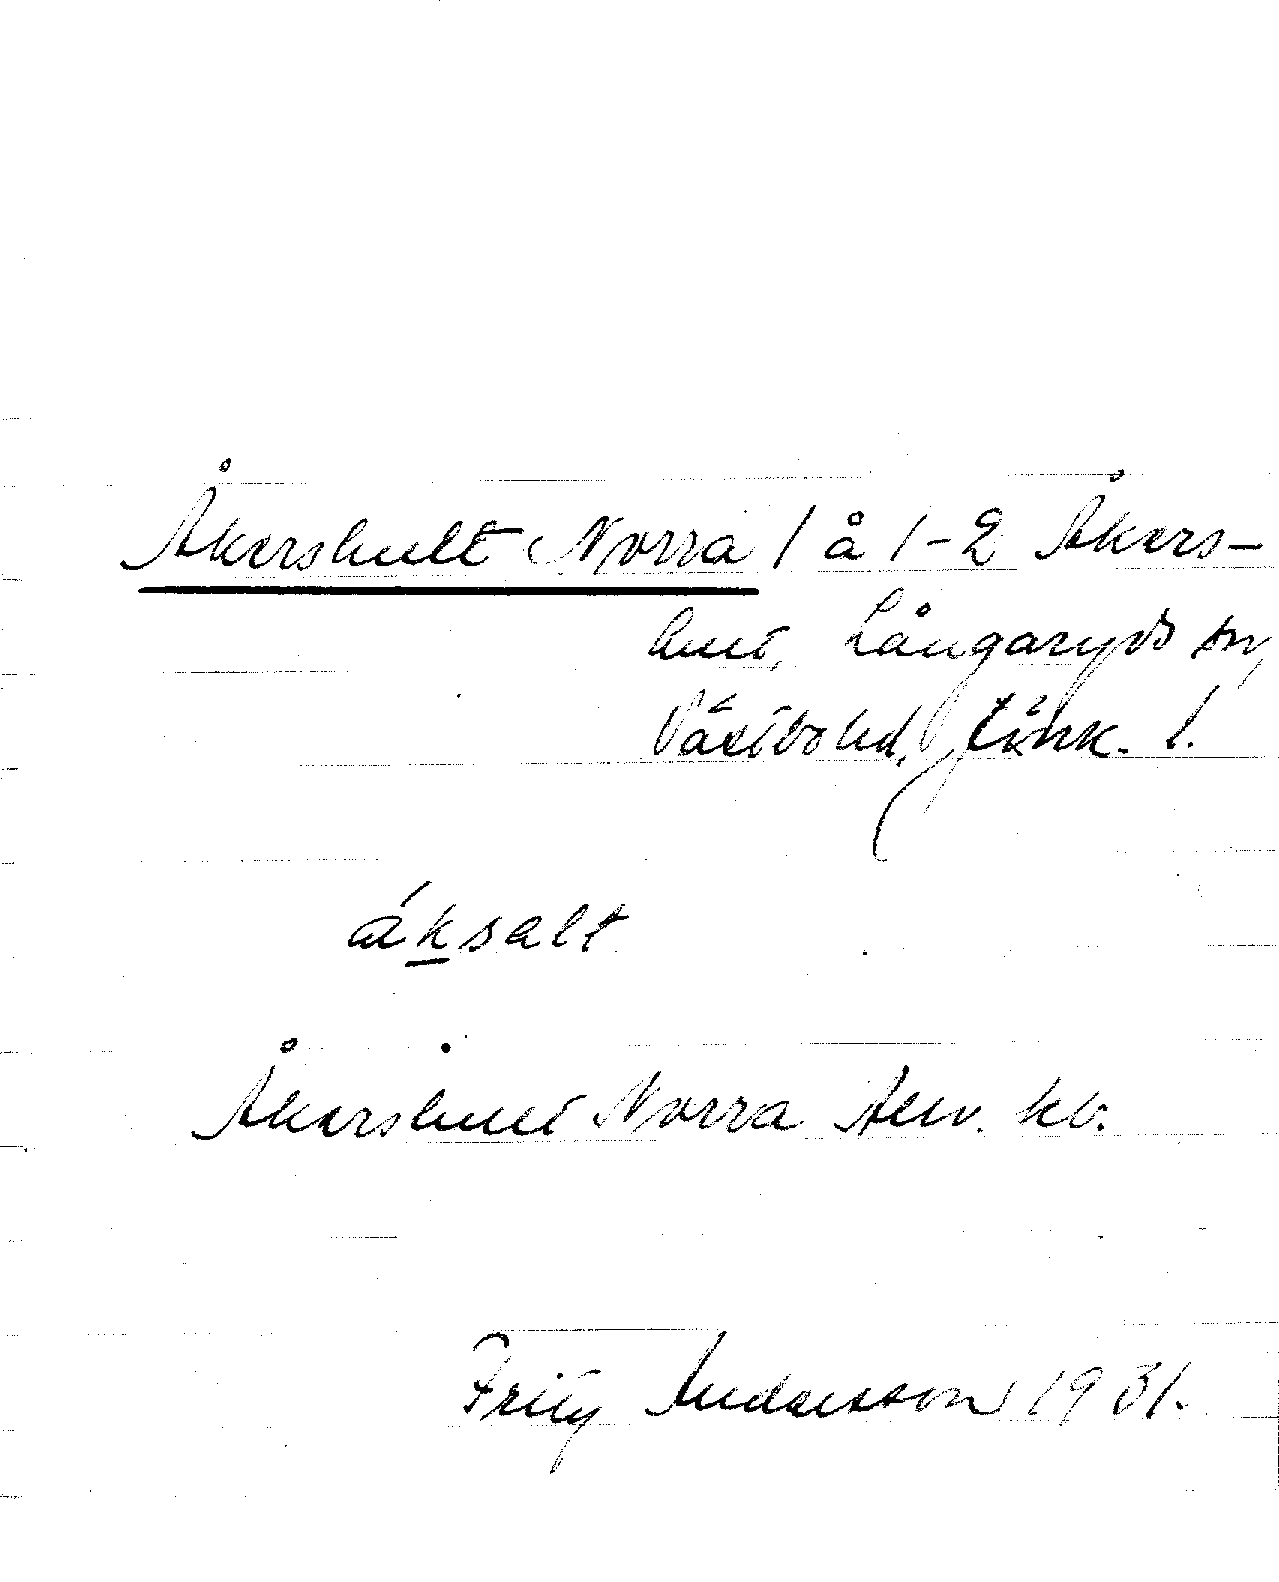 Åkershult Norra 1 å 1-2 Åkers-
hult, Långaryds sn,
Västbo hd, Jönk. l.
áksalt
Åkershult Norra
Fritz Andersson 1931.